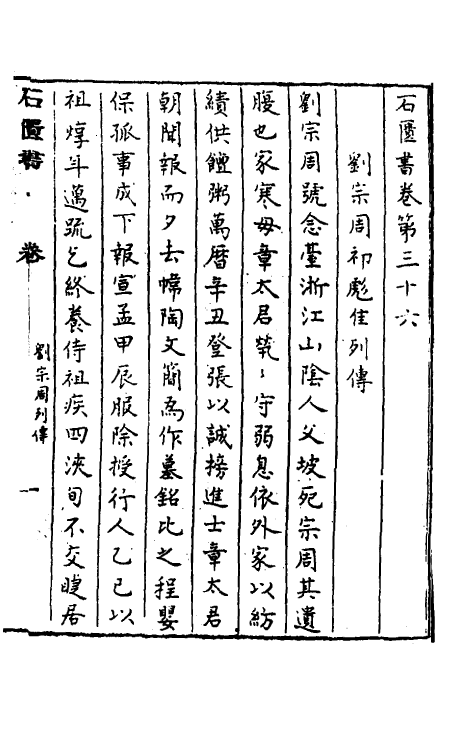 石匱書卷第三十六
劉宗周祁彪佳列傳
劉宗周號念臺浙江山陰人父坡死宗周其遺
腹也家寒毋章太君煢〻守弱息依外家以紡
績供饘粥萬曆辛丑登張以誠榜進士章太君
朝聞報而夕去幃陶文簡為作墓銘比之程嬰
保孤事成下報宣孟甲辰服除授行人乙巳以
祖焞年邁疏乞終養侍祖疾四浹旬不交睫居
石匱書 卷
劉宗周列傳
一